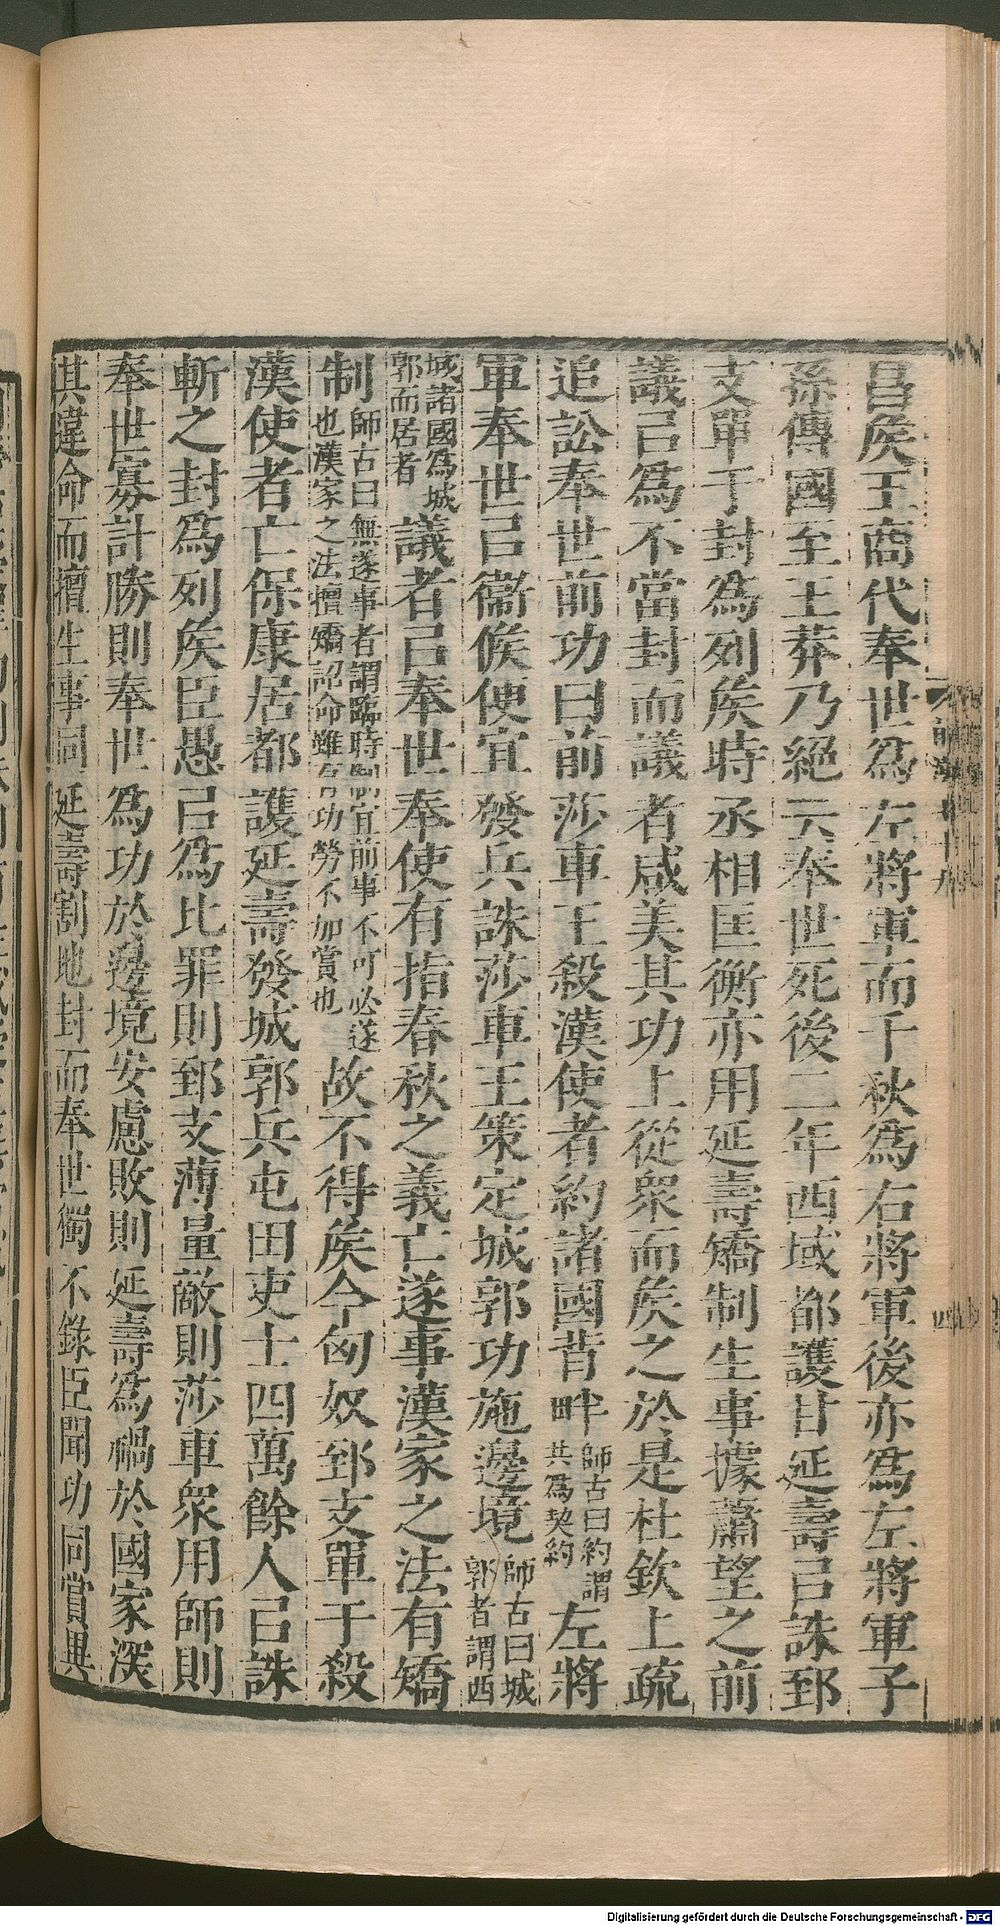 昌矦王商代奉世爲左將軍而千秋爲右將軍後亦爲左將軍子
孫傳國至王莽乃絕云奉世死後二年西域都護甘延壽㠯誅郅
支單于封爲列矦時丞相匡衡亦用延壽矯制生事據蕭望之前
議㠯爲不當封而議者咸美其功上從衆而矦之於是杜欽上疏
追訟奉世前功曰前莎車王殺漢使者約諸國背畔師古曰約謂共爲契約左將
軍奉世㠯衞候便宜發兵誅莎車王策定城郭功施邊境師古曰城郭者謂西
城諸國爲城郭而居者議者㠯奉世奉使有指春秋之義亡遂事漢家之法有矯
制師古曰無遂事者謂臨時制宜前事不可必遂也漢家之法擅矯詔命雖有功勞不加賞也故不得矦今匈奴郅支單于殺
漢使者亡保康居都護延壽發城郭兵屯田吏士四萬餘人㠯誅
斬之封爲列矦臣愚㠯爲比罪則郅支薄量敵則莎車衆用師則
奉世寡計勝則奉世爲功於邊境安慮敗則延壽爲禍於國家深
其違命而擅生事同延壽割地封而奉世獨不錄臣聞功同賞異
Digitalisierung gefördert durch die Deutsche Forschungsgemeinschaft - DFG